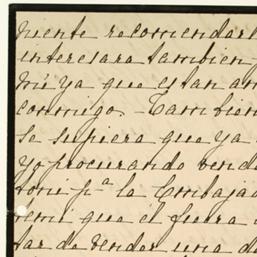 mente recomendarl
interesara tambien
mi ya que estan an
conmigo. - Tambien
se supiera que ya
yo procurando vend
pª la Embajad
que él fuera
tar de vender una d